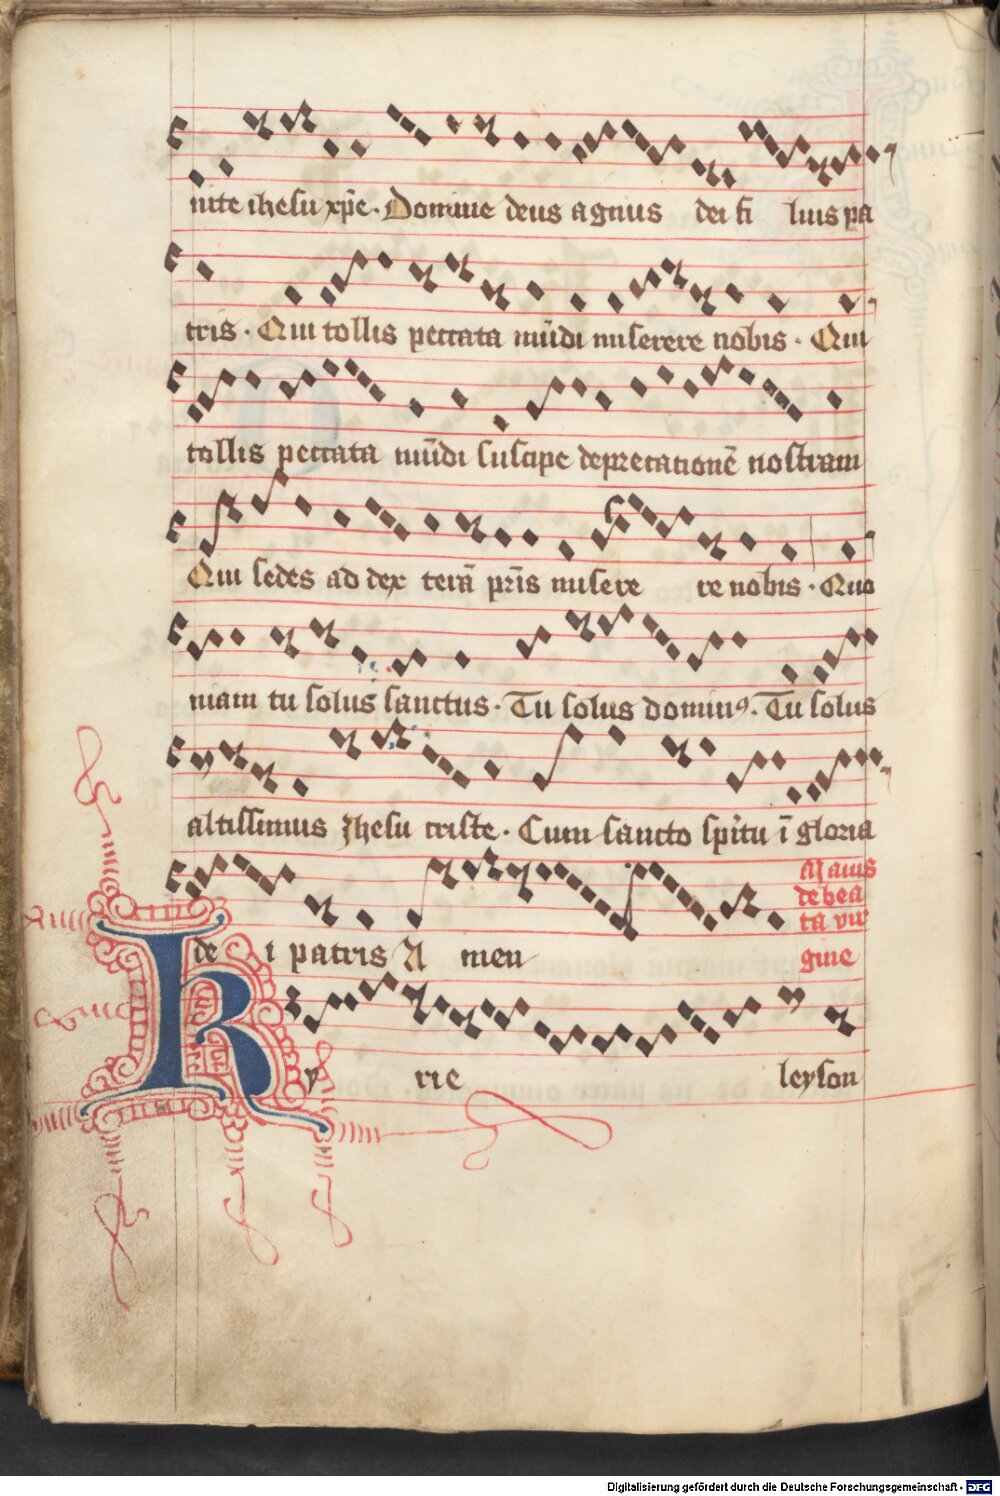 nite ihesu xp̄e · Domine deus agnus dei fi lius pa
tris · Qui tollis peccata mūdi miserere nobis · Qui
tollis peccata mūdi suscipe deprecationē nostram
Qui sedes ad dex terā pr̄is misere re nobis · Quo
niam tu solus sanctus · Tu solus dominꝯ · Tu solus
altissimus Jhesu criste · Cum sancto sp̄itu ī gloria
de i patris A men
Maius
de bea
ta vir
gine
Ky rie leyson
Digitalisierung gefördert durch die Deutsche Forschungsgemeinschaft - DFG